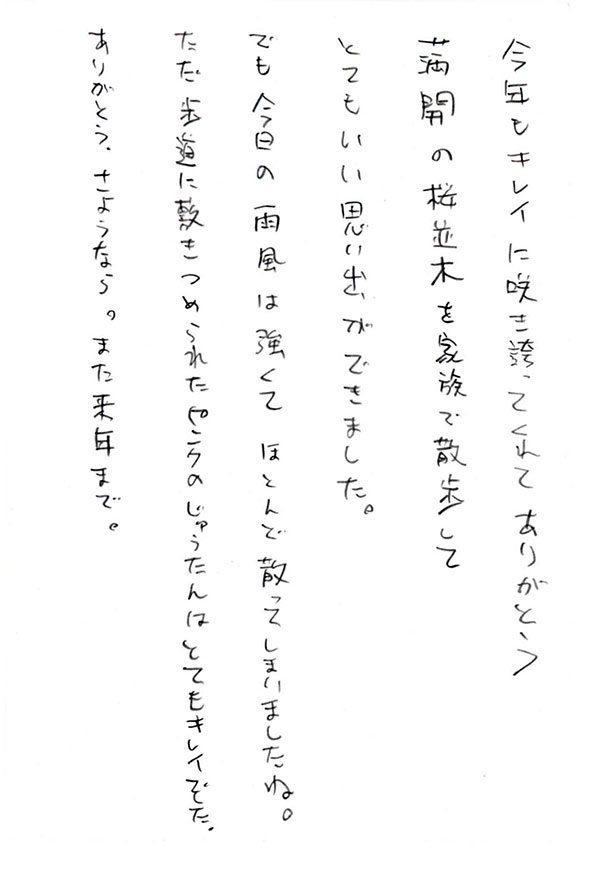 今年もキレイに咲き誇ってくれてありがとう
満開の桜並木を家族で散歩して
とてもいい思い出ができました。
でも今日の雨風は強くてほとんど散ってしまいましたね。
ただ歩道に敷きつめられたピンクのじゅうたんはとてもキレイでした。
ありがとう、さようなら。また来年まで。